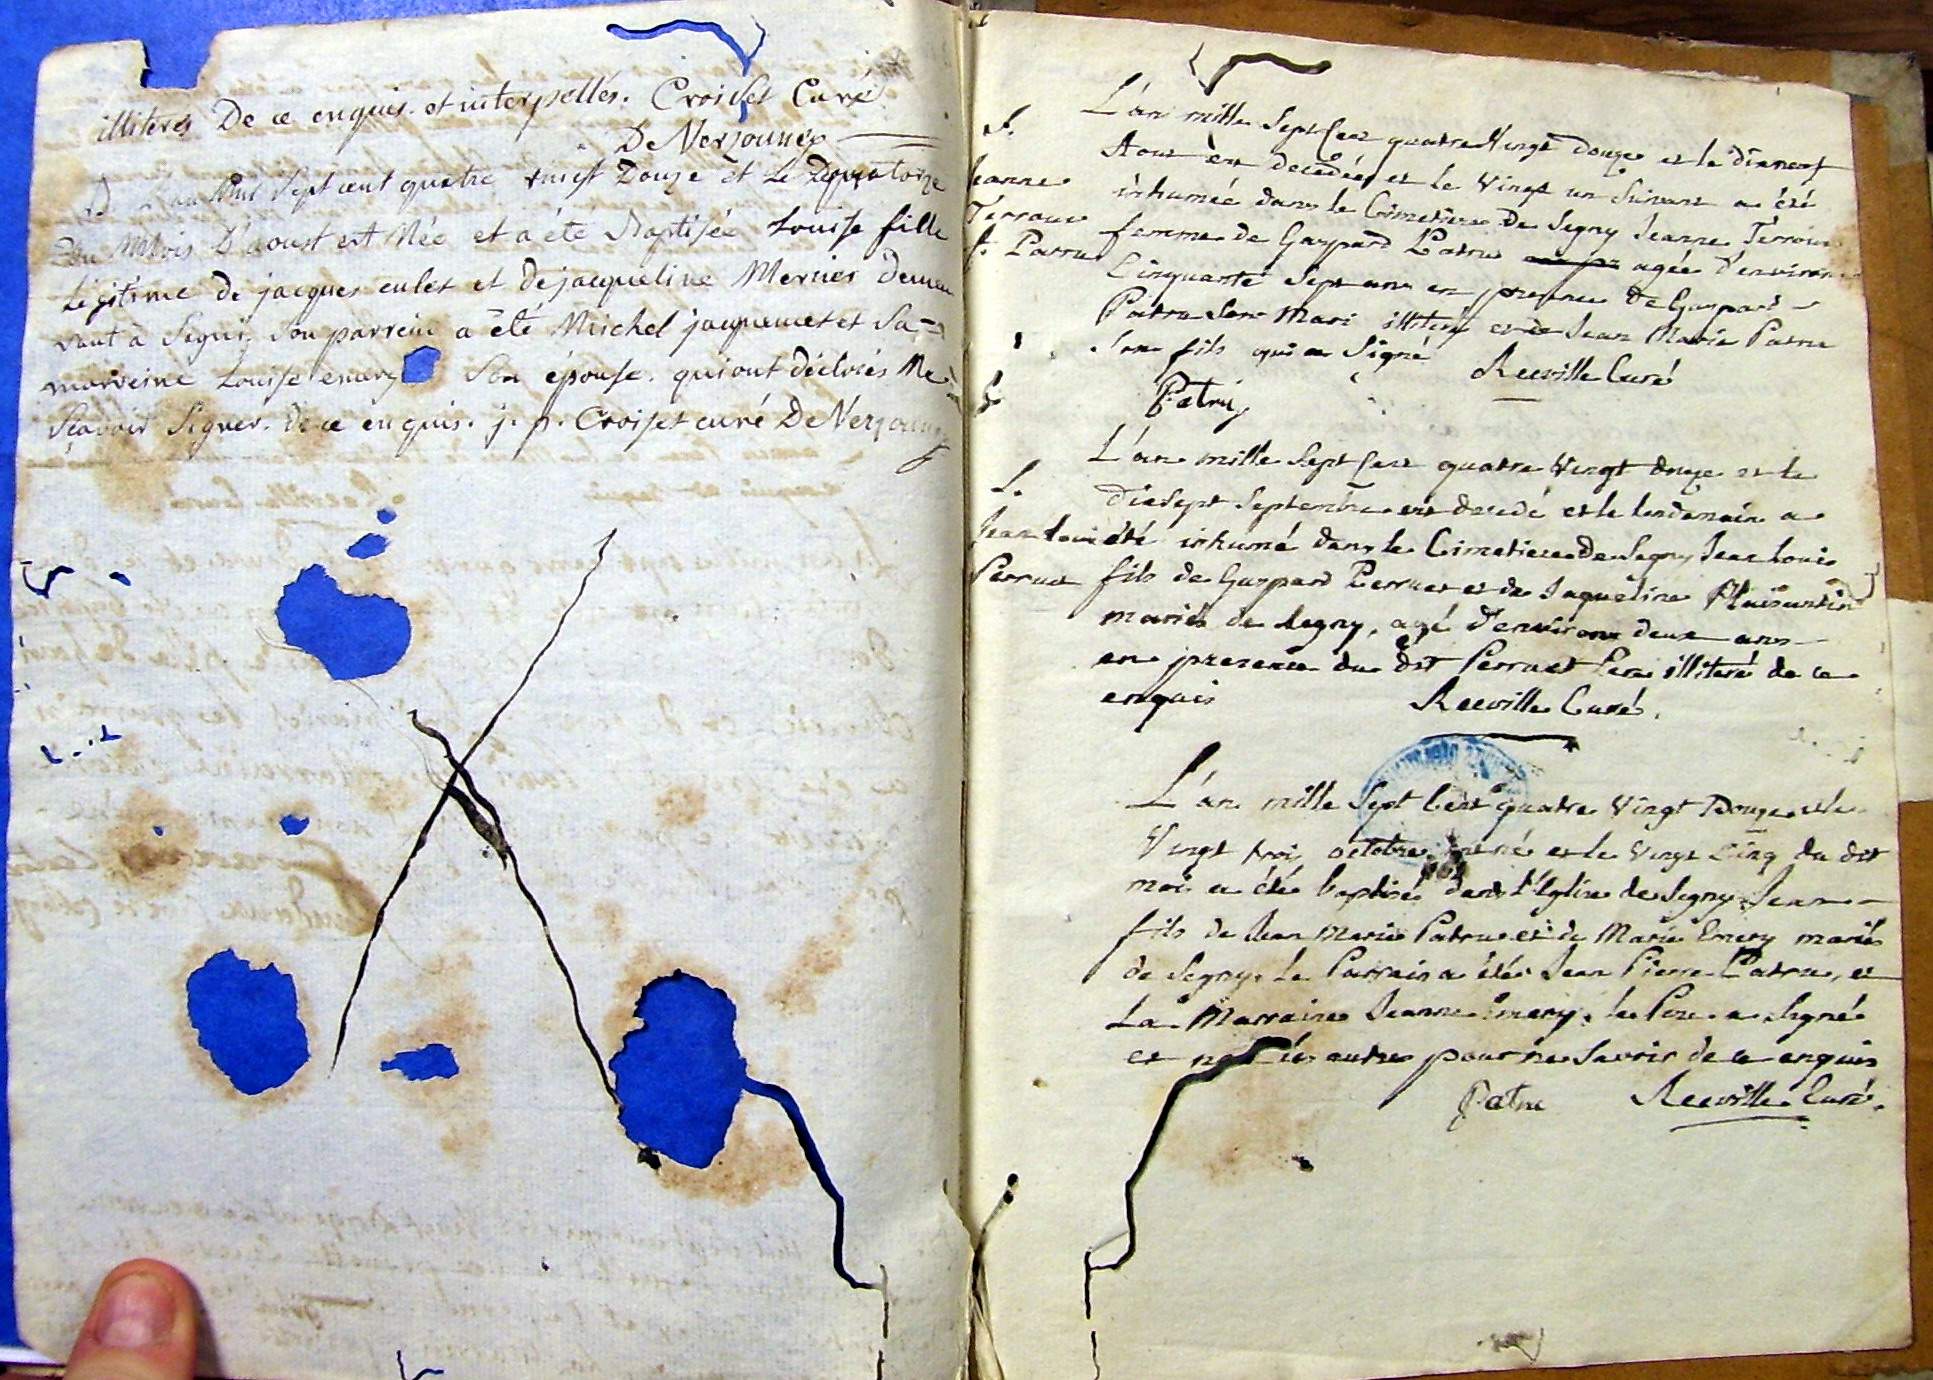 illiterés De ce enquis. et interpellés. Croiset Curé
De Versonnex
L'an Mil Sept cent quatre vingt Douze et Le quatorze
Du Mois D'aoust est Née et a été Baptisée Louise fille
Légitime de jacques culet et De jacqueline Mernier Demeu
rant à Segny. Son parrein a été Michel jacquemet et Sa
marreine Louise emery Son épouse. qui ont déclarés Ne
Sçavoir Signer. de ce enquis. j. p. Croiset curé De Versonnex
S.
Jeanne
Terroux
f. Patru
L'an mille Sept Cent quatre Vingt Douze et le dixneuf
Aout est decedée, et le Vingt un Suivant a été
inhumée dans le Cimetiere De Segny Jeanne Terroux
femme de Gaspard Patru agée d'environ
Cinquante Sept ans en presence De Gaspard
Patru Son Mari illiteré et de Jean Marie Patru
Son fils qui a Signé Reeville Curé
Patru
S.
Jean Louis
Perruet
L'an mille Sept Cent quatre Vingt douze et le
Dixsept Septembre est decedé et le lendemain a
été inhumé dans le Cimetiere De Segny Jean Louis
fils de Gaspard Perruet et de Jaqueline Plaisantin
mariés de Segny, agé d'environ deux ans
en presence du dit Perruet Pere illiteré de ce
enquis Reeville Curé.
L'an mille Sept Cent quatre Vingt Douze et le
Vingt trois octobre est né et le Vingt Cinq du dit
mois a été baptisé dans l'Eglise de Segny Jean
fils de Jean Marie Patru et de Marie Emery mariés
de Segny. Le Parrain a été Jean Pierre Patru, et
La Marraine Jeanne Emery. le Pere a Signé
et non les autres pour ne Savoir de ce enquis
Patru Reeville Curé.